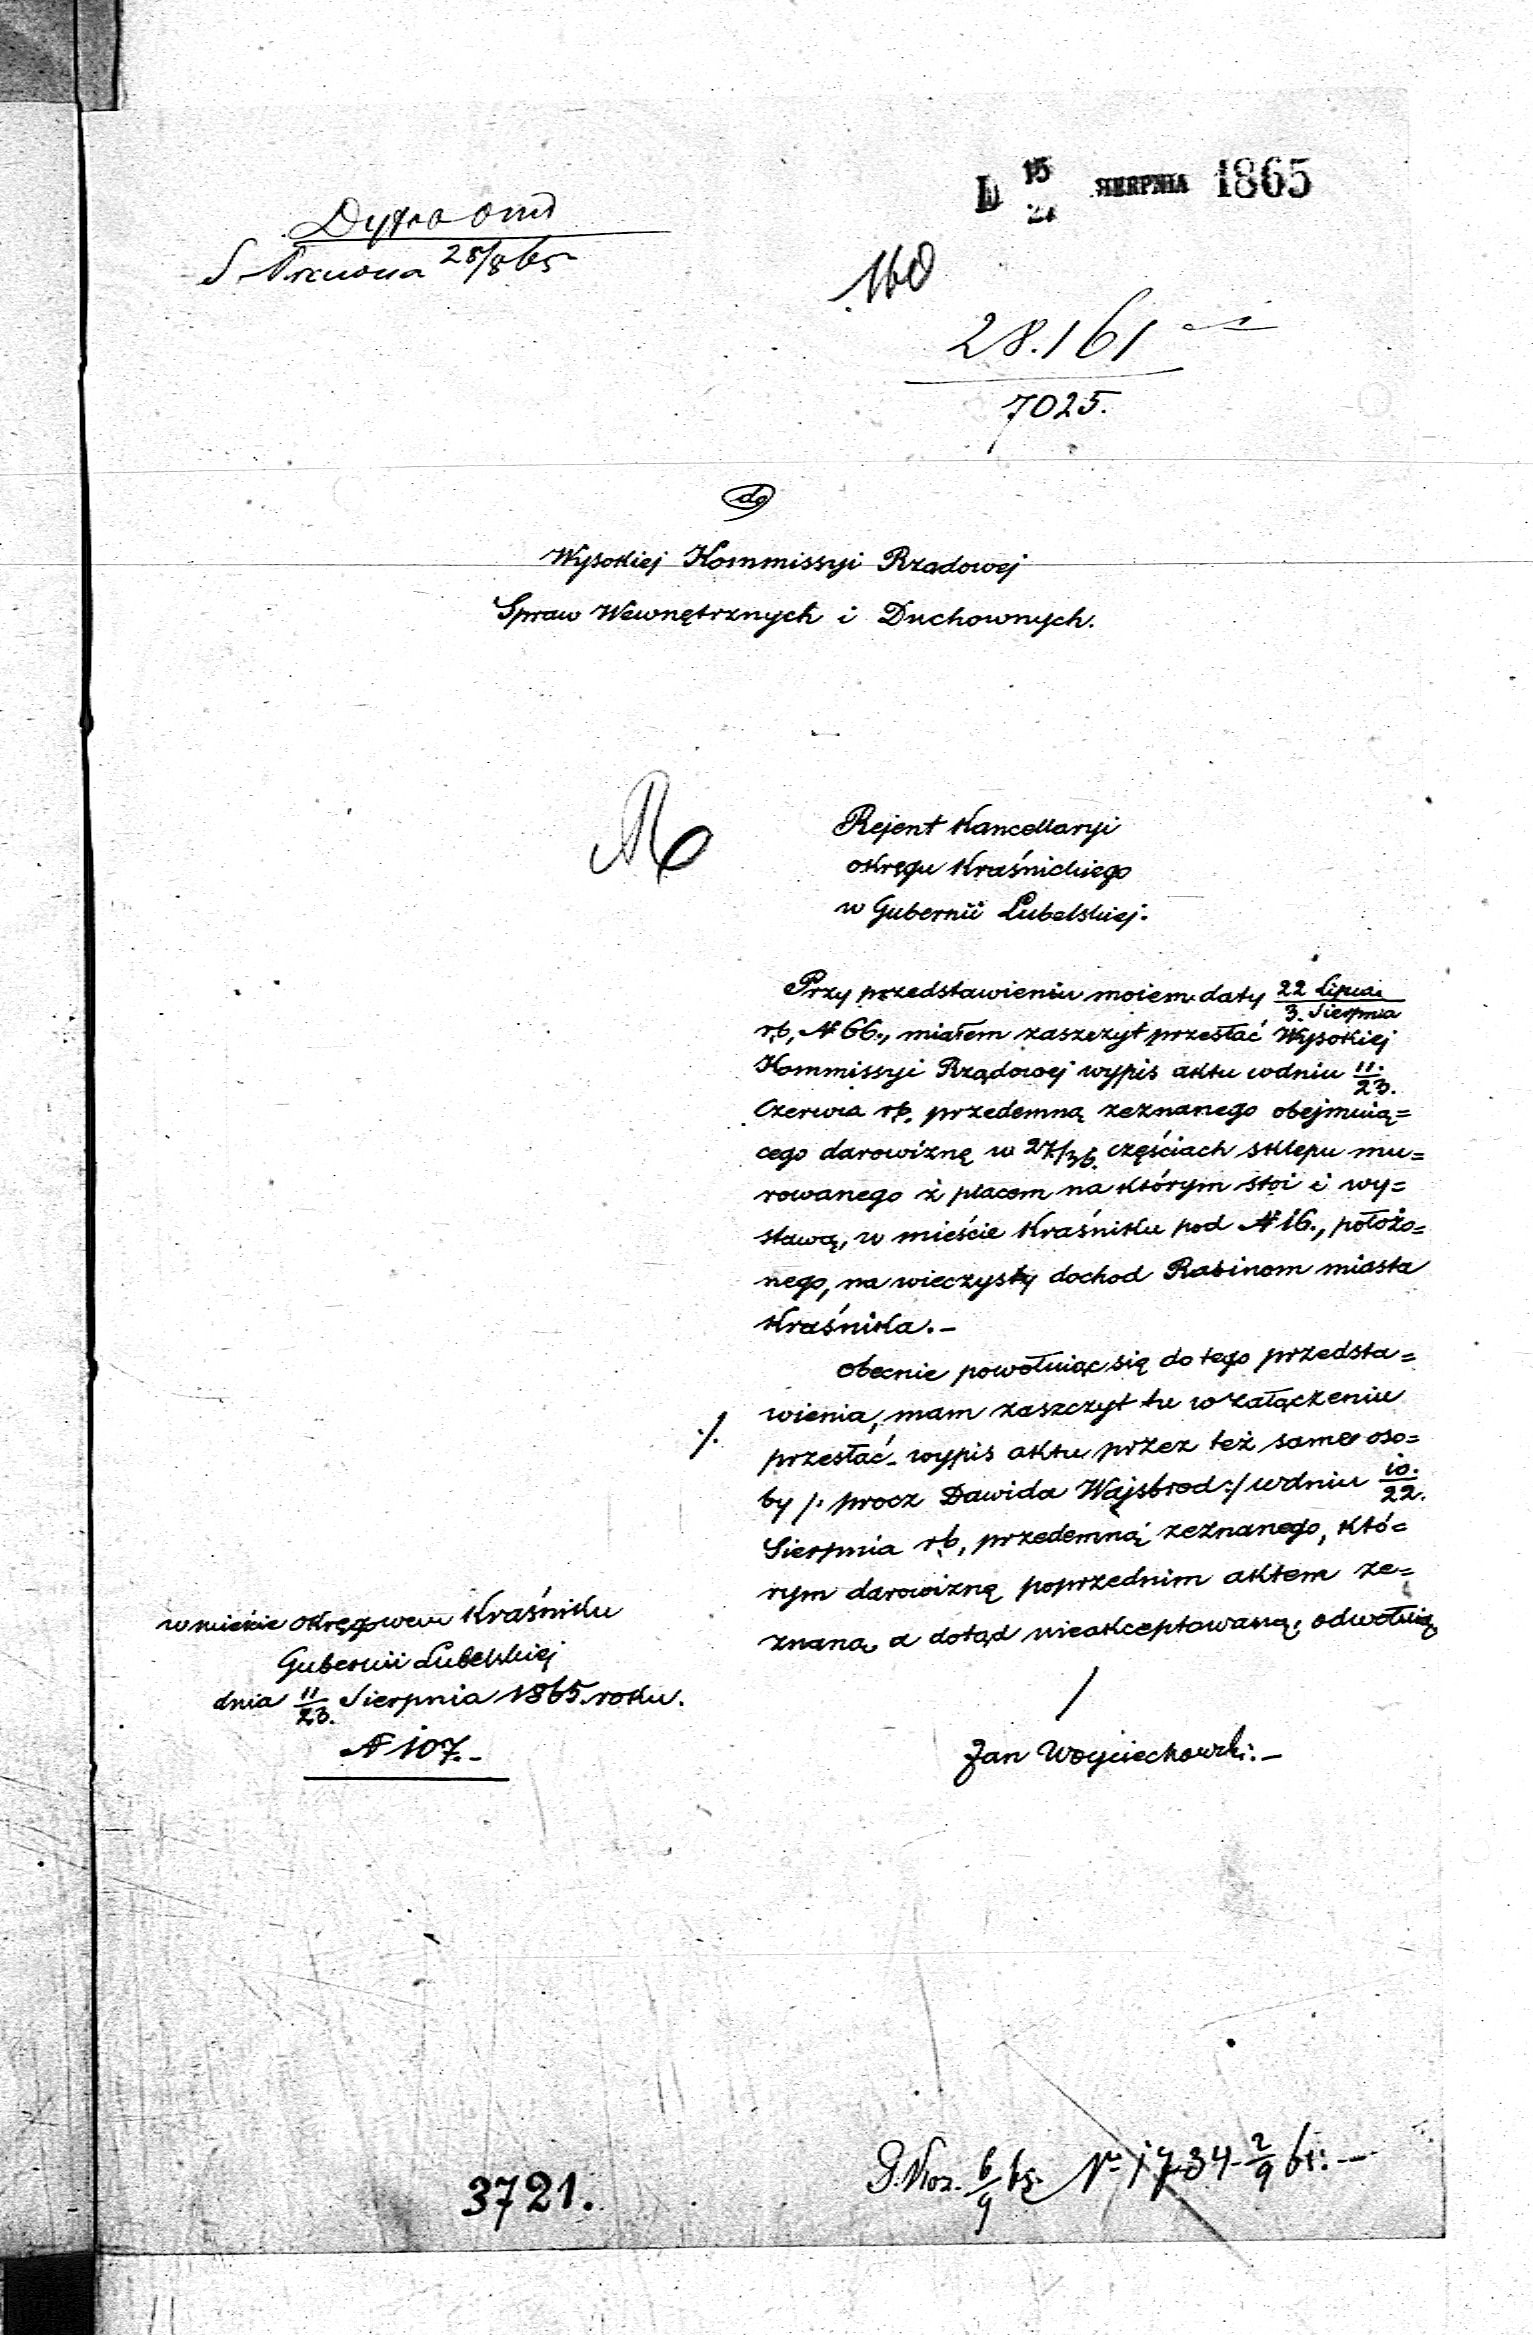 D 15/27 SIERPNIA 1865
28/8 65
160
28.161
7025.
do
Wysokiej Kommissyi Rządowej
Spraw Wewnętrznych i Duchownych.
Rejent Kancellaryi
okręgu Kraśnickiego
w Gubernii Lubelskiej.
Przy przedstawieniu moiem daty 22 Lipca/3. Sierpnia
rb, N 66., miałem zaszczyt przesłać Wysokiej
Kommissyi Rządowej wypis aktu wdniu 11./23.
Czerwca rb. przedemną zeznanego obejmuią=
cego darowiznę w 27/36. częściach sklepu mu=
rowanego z placem na którym stoi i wy=
stawą, w mieście Kraśniku pod N 16., położo=
nego, na wieczysty dochod Rabinom miasta
Kraśnika.–
Obecnie powołuiąc się do tego przedsta=
wienia, mam zaszczyt tu w załączeniu
./.
przesłać wypis aktu przez też same oso=
by /. procz Dawida Wajsbrod:/ wdniu 10./22.
Sierpnia rb, przedemną zeznanego, któ=
rym darowiznę poprzednim aktem ze=
znaną a dotąd nieakceptowaną, odwołuią
w mieście okręgowem Kraśniku
Gubernii Lubelskiej
dnia 11/23. Sierpnia 1865. roku.
N 107.–
Jan Wojciechowski.–
6/9 65. N 1734 2/9 65.–
3721.